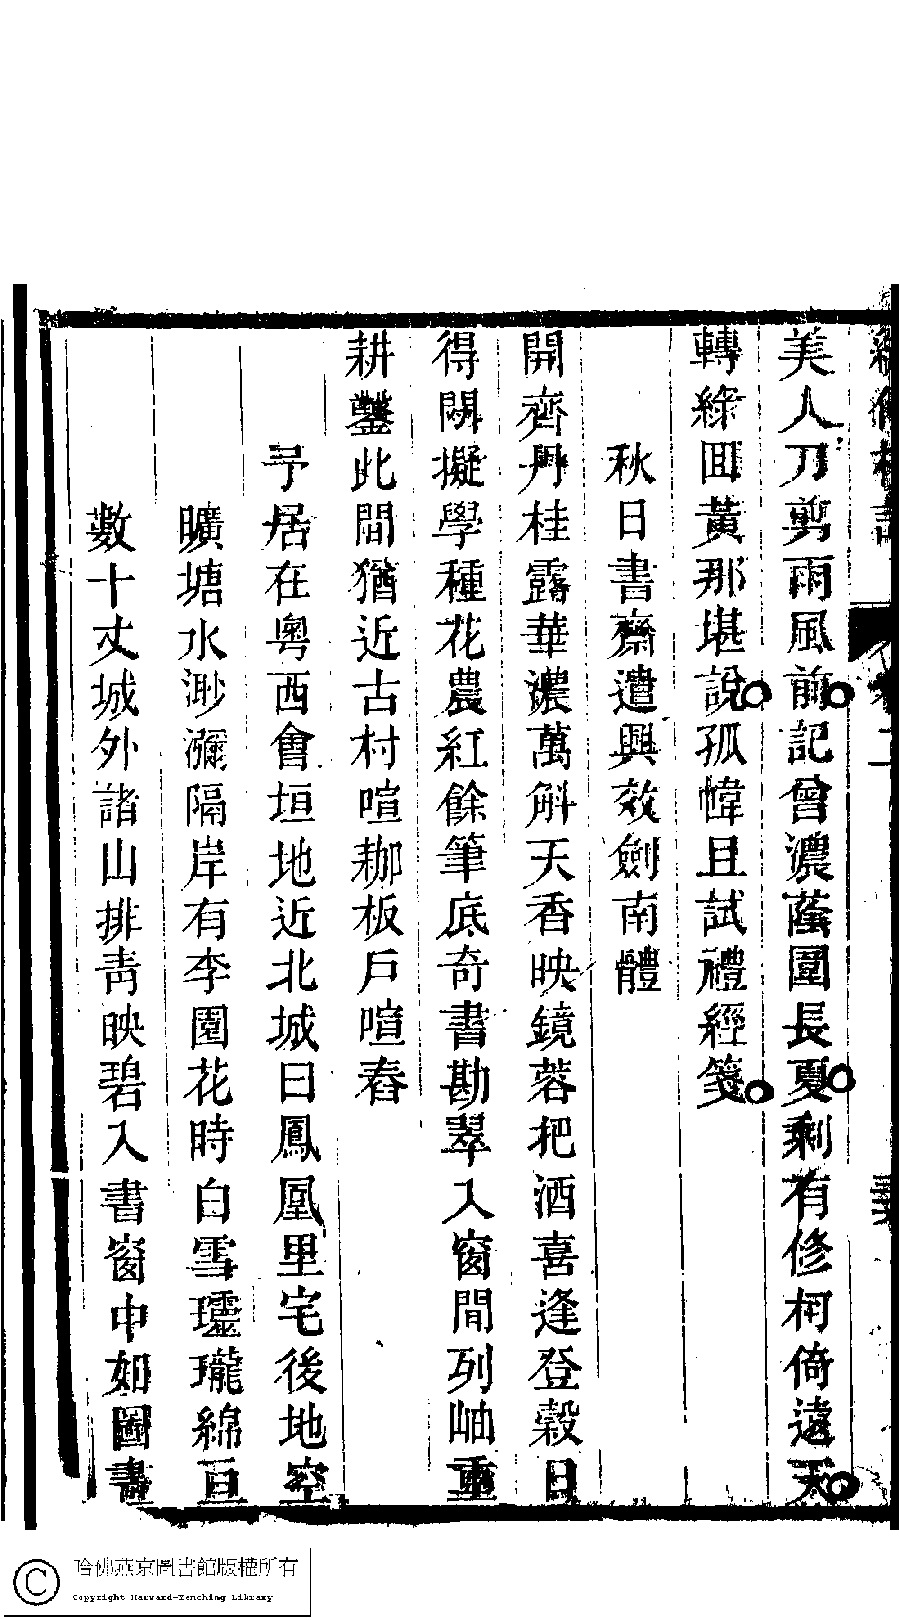 美人刀剪雨風前記曾濃蔭圍長夏剩有修柯倚遠天
轉綠回黃那堪說孤幃且試禮經箋
秋日書齋遣興效劍南體
開齊丹桂露華濃萬斛天香映鏡蓉把酒喜逢登穀日
得閑擬學種花農紅餘筆底奇書勘翠入窗間列岫重
耕鑿此間猶近古村喧耞板戶喧舂
予居在粵西會垣地近北城曰鳳凰里宅後地空
曠塘水渺瀰隔岸有李園花時白雪瓏瓏綿亘
數十丈城外諸山排靑映碧入書窗中如圖畫
哈佛燕京圖書館版權所有
Copyright Harvard-Yenching Library